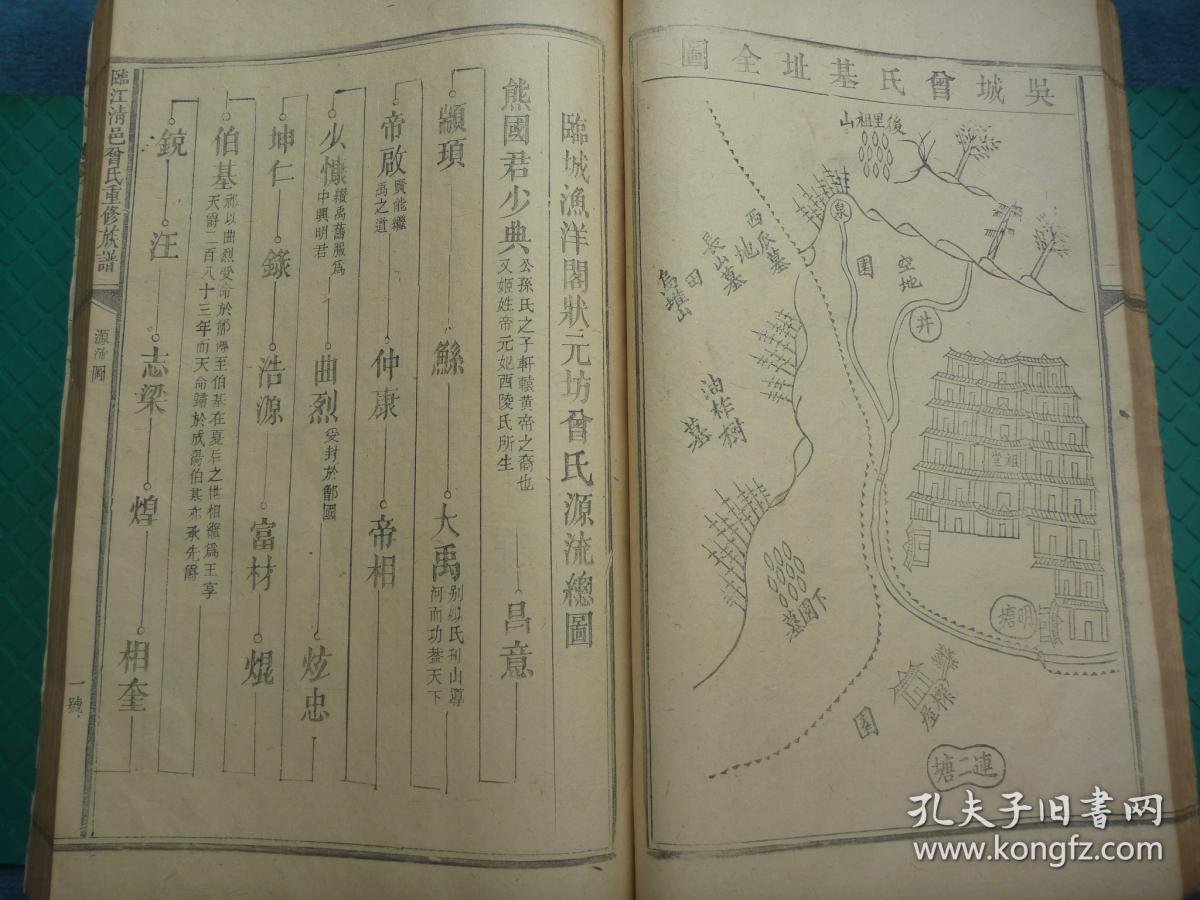 吳城曾氏基址全圖
後里祖山
泉
西瓜墓
地
長山墓
田
園
空地
井
祖堂
油柞樹墓
下園墓
明塘
園
樑屋
連二塘
臨城漁洋閣狀元坊曾氏源流總圖
熊國君少典 公孫氏之子軒轅黄帝之裔也
又姬姓帝元妃西陵氏所生
昌意
顓頊
鯀
大禹 别姒氏刊山導
河而功蓋天下
帝啟 賢能繼
禹之道
仲康
帝相
少慷 纘禹舊服爲
中興明君
曲烈 受封於鄫國
炫忠
坤仁
錄
浩源
富材
焜
伯基 祁以曲烈受命於鄫傳至伯基在夏后之世相繼爲王享
天爵二百八十三年而天命歸於成湯伯基亦承先爵
鋴
汪
志梁
煌
相奎
臨江清邑曾氏重修族譜
源流圖
一號
孔夫子旧书网
www.kongfz.com